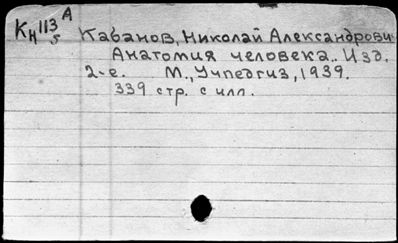 Кн 113 А
5
Кабанов, Николай Александрови
Анатомия человека.. Изд.
2-е. М., Учпедгиз, 1939.
339 стр. с илл.